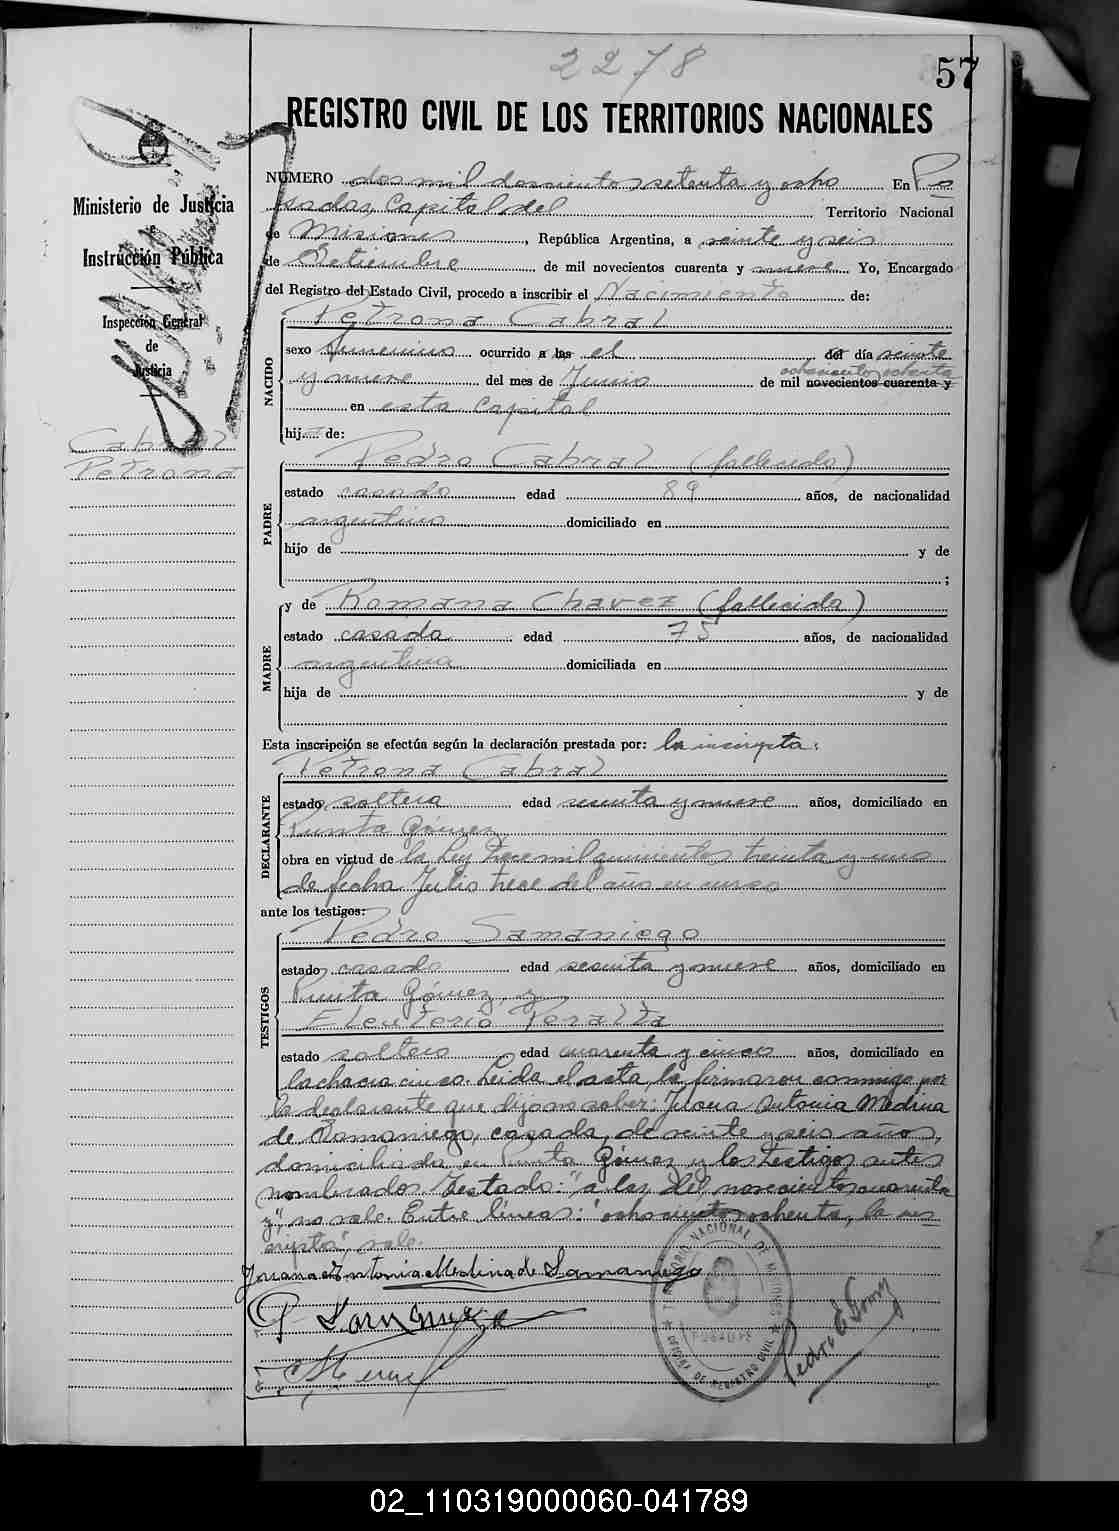 2278
57
REGISTRO CIVIL DE LOS TERRITORIOS NACIONALES
Ministerio de Justicia
e
Instrucción Pública
Inspección General
de
Justicia
Cabral
Petrona
NÚMERO dos mil doscientos setenta y ocho En Po
sadas, Capital del Territorio Nacional
de Misiones, República Argentina, a veinte y seis
de Setiembre de mil novecientos cuarenta y nueve Yo, Encargado
del Registro del Estado Civil, procedo a inscribir el Nacimiento de:
Petrona Cabral
NACIDO
sexo femenino ocurrido a las el del día veinte
y nueve del mes de Junio de mil novecientos cuarenta y
ochocientos ochenta
en esta Capital
hija de:
Pedro Cabral (fallecido)
PADRE
estado casado edad 89 años, de nacionalidad
argentino domiciliado en
hijo de y de
;
MADRE
y de Romana Chavez (fallecida)
estado casada edad 75 años, de nacionalidad
argentina domiciliada en
hija de y de
Esta inscripción se efectúa según la declaración prestada por: la inscripta:
Petrona Cabral
DECLARANTE
estado soltera edad sesenta y nueve años, domiciliado en
Punta Gómez
obra en virtud de la Ley trece mil quinientos treinta y uno
de fecha Julio trece del año en curso
ante los testigos:
Pedro Samaniego
TESTIGOS
estado casado edad sesenta y nueve años, domiciliado en
Punta Gómez, y
Eleuterio Peralta
estado soltero edad cuarenta y cinco años, domiciliado en
la chacra cinco. Leida el acta, la firmaron conmigo por
la declarante que dijo no saber: Juana Antonia Medina
de Samaniego, casada, de veinte y seis años,
domiciliada en Punta Gómez y los testigos antes
nombrados Testado: "a las del, novecientos cuarenta
y", no vale. Entre líneas: "ochocientos ochenta, la ins
cripta", vale.
Juana Antonia Medina de Samaniego
TERRITORIO NACIONAL DE MISIONES
POSADAS
OFICINA DE REGISTRO CIVIL
02_110319000060-041789